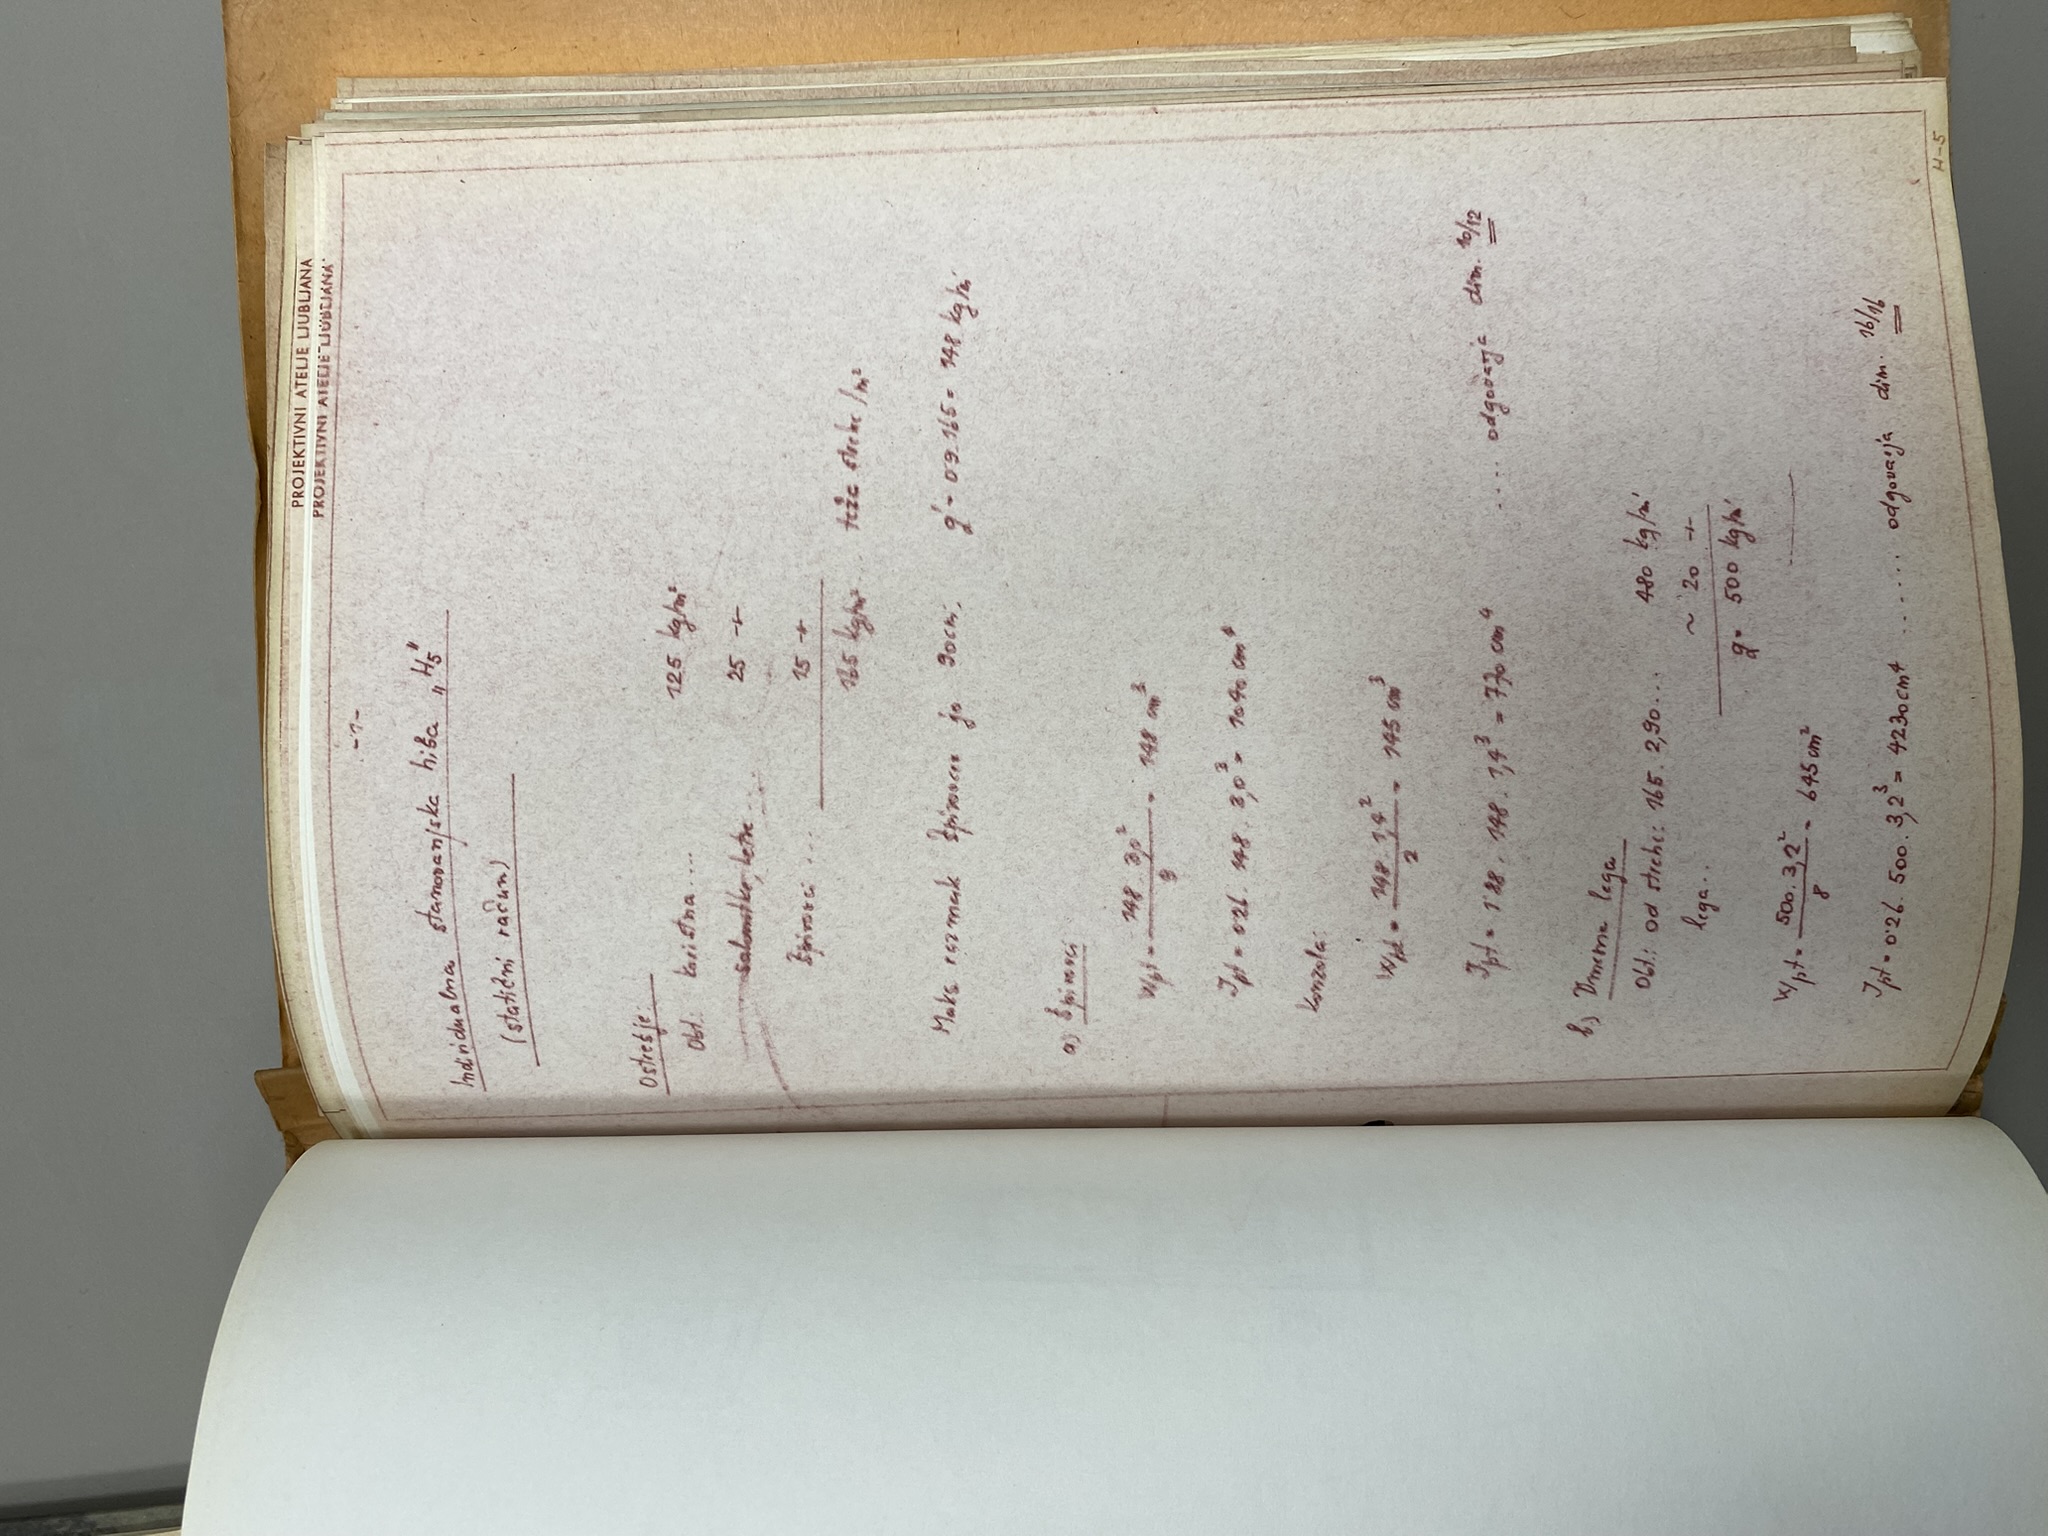 PROJEKTIVNI ATELJE LJUBLJANA
PROJEKTIVNI ATELJE LJUBLJANA
-1-
Individualna stanovanjska hiša „H5"
(statični račun)
Ostrešje
Obt.: koristna.... 125 kg/m²
salonitke, letve... 25 -+-
špirovci ... 15 -+-
165 kg/m² .. teže strehe /m²
Maks. razmak špirovcev je 90cm. g' = 0'9.165 = 148 kg/m'
a) Špirovci
Wpt = 148.3,0² / 9 = 148 cm³
Jpt = 0'26.148.3,0³ = 1040 cm⁴
Konzola:
Wpt = 148.1,4² / 2 = 145 cm³
Jpt = 1'28.148.1,4³ = 770 cm⁴ ..... odgovarja dim. 10/12
b) Vmesna lega
Obt.: od strehe: 165.2,90... 480 kg/m'
lega.. ~ 20 -+-
g = 500 kg/m'
Wpt = 500.3,2² / 8 = 645 cm²
Jpt = 0'26.500.3,2³ = 4230cm⁴ ....... odgovarja dim. 16/16
H-5